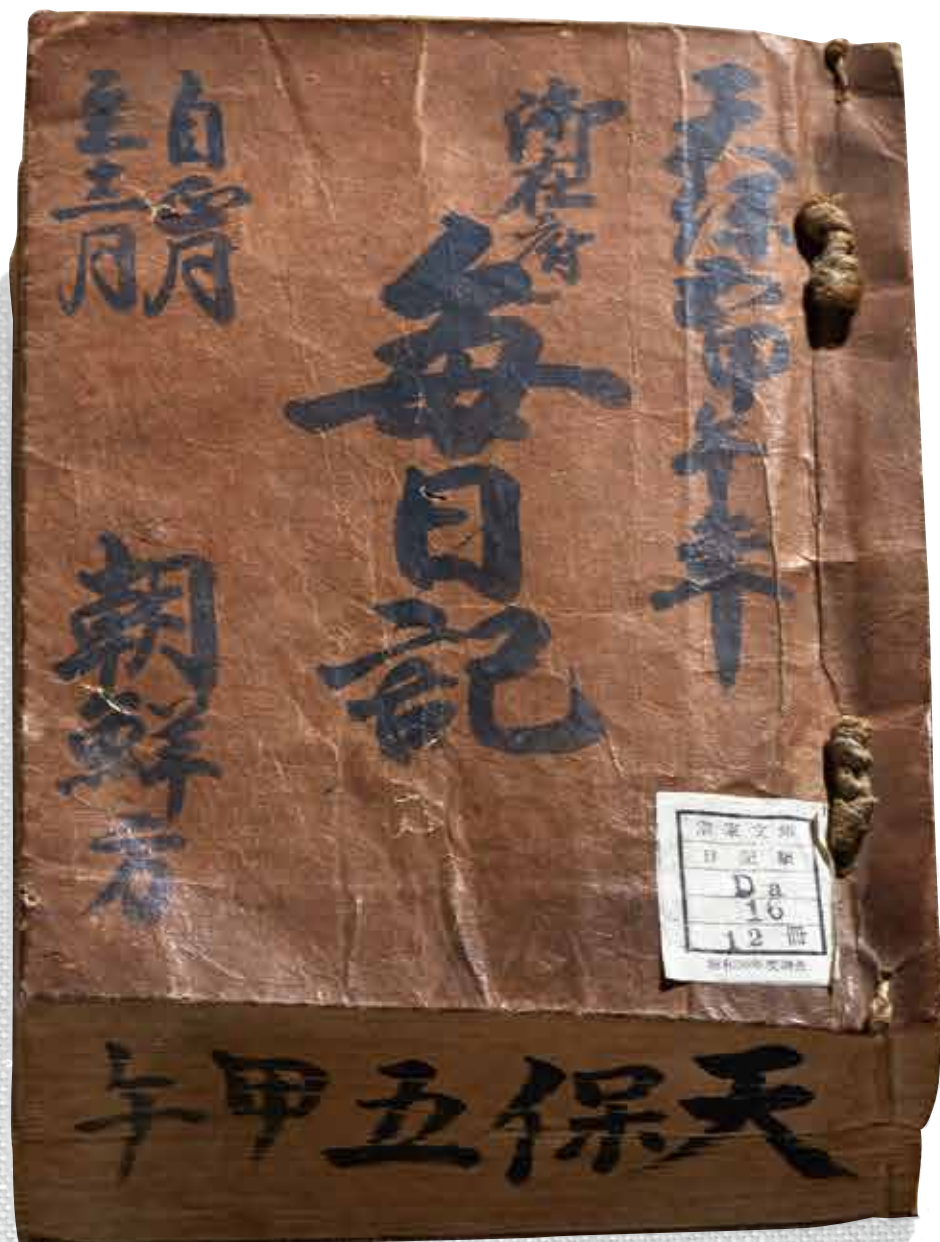 天保五甲午年
御在府
毎日記
自正月
至三月
朝鮮方
宗家文庫
日記類
Da
16
12 冊
天保五甲午